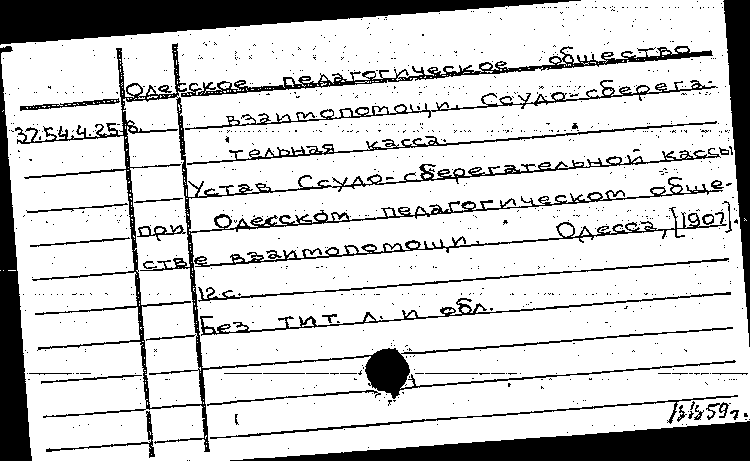 Одесское педагогическое общество
37.54.4.258.
взаимопомощи. Ссудо-сберега-
тельная касса.
Устав Ссудо-сберегательной кассы
при Одесском педагогическом обще-
стве взаимопомощи. Одесса, [1907].
12 с.
Без тит. л. и обл.
59 г.